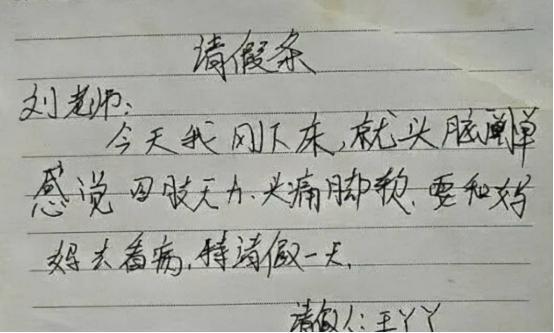 请假条
刘老师:
今天我刚下床,就头脑画单
感觉四肢无力、头痛脚软,要和妈
妈去看病,特请假一天,
请假人:王丫丫